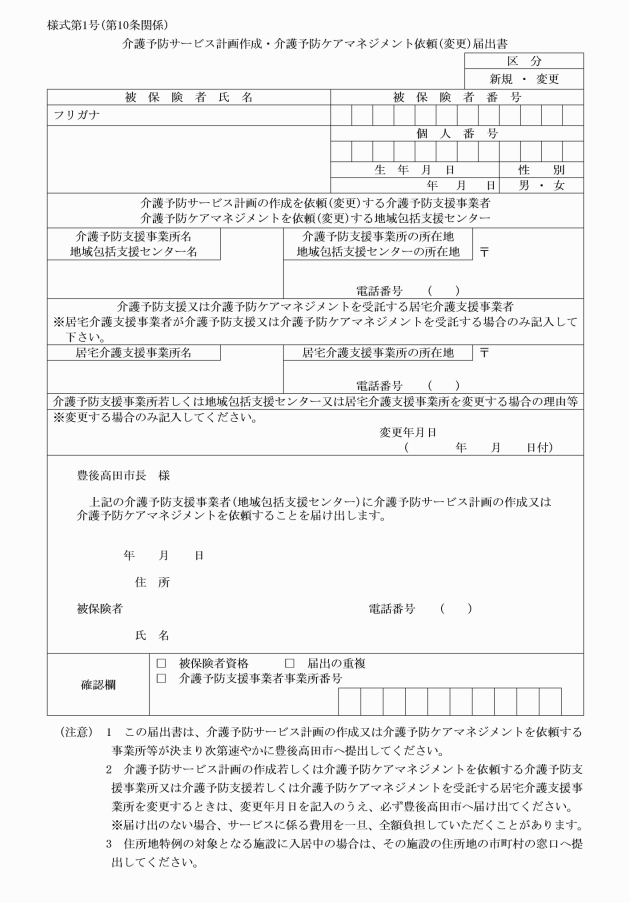 様式第1号(第10条関係)
介護予防サービス計画作成・介護予防ケアマネジメント依頼(変更)届出書
区　分
新規 ・ 変更
被　保　険　者　氏　名
被　保　険　者　番　号
フリガナ
個　人　番　号
生　年　月　日
性　　別
年　　月　　日
男 ・ 女
介護予防サービス計画の作成を依頼(変更)する介護予防支援事業者
介護予防ケアマネジメントを依頼(変更)する地域包括支援センター
介護予防支援事業所名
地域包括支援センター名
介護予防支援事業所の所在地
地域包括支援センターの所在地
〒
電話番号　　(　　)
介護予防支援又は介護予防ケアマネジメントを受託する居宅介護支援事業者
※居宅介護支援事業者が介護予防支援又は介護予防ケアマネジメントを受託する場合のみ記入して
下さい。
居宅介護支援事業所名
居宅介護支援事業所の所在地
〒
電話番号　　(　　)
介護予防支援事業所若しくは地域包括支援センター又は居宅介護支援事業所を変更する場合の理由等
※変更する場合のみ記入してください。
変更年月日
(　　　　年　　月　　日付)
豊後高田市長　様
上記の介護予防支援事業者(地域包括支援センター)に介護予防サービス計画の作成又は
介護予防ケアマネジメントを依頼することを届け出します。
年　　月　　日
住　所
被保険者
電話番号　　(　　)
氏　名
確認欄
□　被保険者資格　　　□　届出の重複
□　介護予防支援事業者事業所番号
(注意)　1　この届出書は、介護予防サービス計画の作成又は介護予防ケアマネジメントを依頼する
事業所等が決まり次第速やかに豊後高田市へ提出してください。
2　介護予防サービス計画の作成若しくは介護予防ケアマネジメントを依頼する介護予防支
援事業所又は介護予防支援若しくは介護予防ケアマネジメントを受託する居宅介護支援事
業所を変更するときは、変更年月日を記入のうえ、必ず豊後高田市へ届け出てください。
※届け出のない場合、サービスに係る費用を一旦、全額負担していただくことがあります。
3　住所地特例の対象となる施設に入居中の場合は、その施設の住所地の市町村の窓口へ提
出してください。